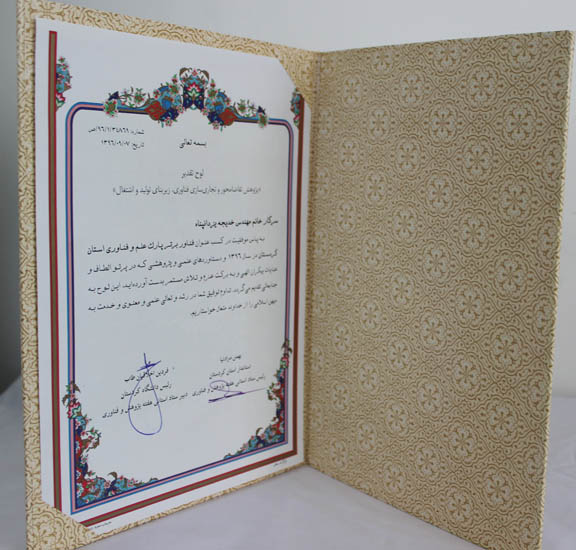 بسمه تعالی
شماره: ۹۶/۱/۳۴۸۶۹/ص
تاریخ: ۱۳۹۶/۰۹/۰۷
لوح تقدیر
«پژوهش تقاضامحور و تجاری‌سازی فناوری، زیربنای تولید و اشتغال»
سرکار خانم مهندس خدیجه یزدانپناه
به پاس موفقیت در کسب عنوان فناور برتر پارک علم و فناوری استان
کردستان در سال ۱۳۹۶ و دستاوردهای علمی و پژوهشی که در پرتو الطاف و
عنایات بیکران الهی و به برکت عزم و تلاش مستمر بدست آورده‌اید، این لوح به
جنابعالی تقدیم می‌گردد. تداوم توفیق شما در رشد و تعالی علمی و معنوی و خدمت به
میهن اسلامی را از خداوند متعال خواستاریم.
بهمن مرادنیا
استاندار استان کردستان
رئیس ستاد استانی هفته پژوهش و فناوری
فردین اخلاقیان طاب
رئیس دانشگاه کردستان
دبیر ستاد استانی هفته پژوهش و فناوری